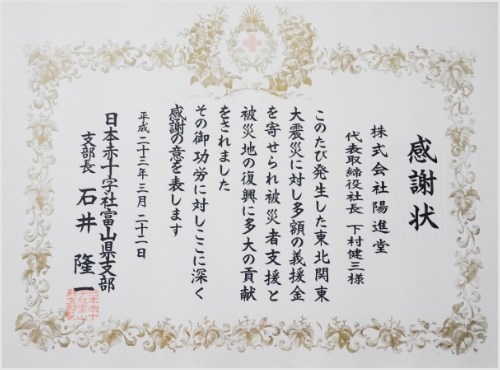 感謝状
株式会社陽進堂
代表取締役社長 下村健三様
このたび発生した東北関東
大震災に対し多額の義援金
を寄せられ被災者支援と
被災地の復興に多大の貢献
をされました
その御功労に対しここに深く
感謝の意を表します
平成二十三年三月二十二日
日本赤十字社富山県支部
支部長 石井隆一